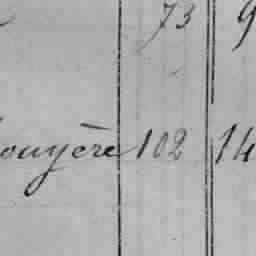 73 9
ouyère 102 14